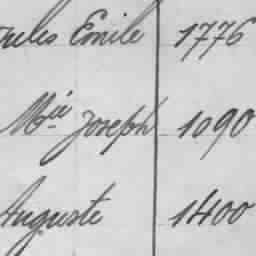 Jules Emile 1776
Mie Joseph 1090
Auguste 1400